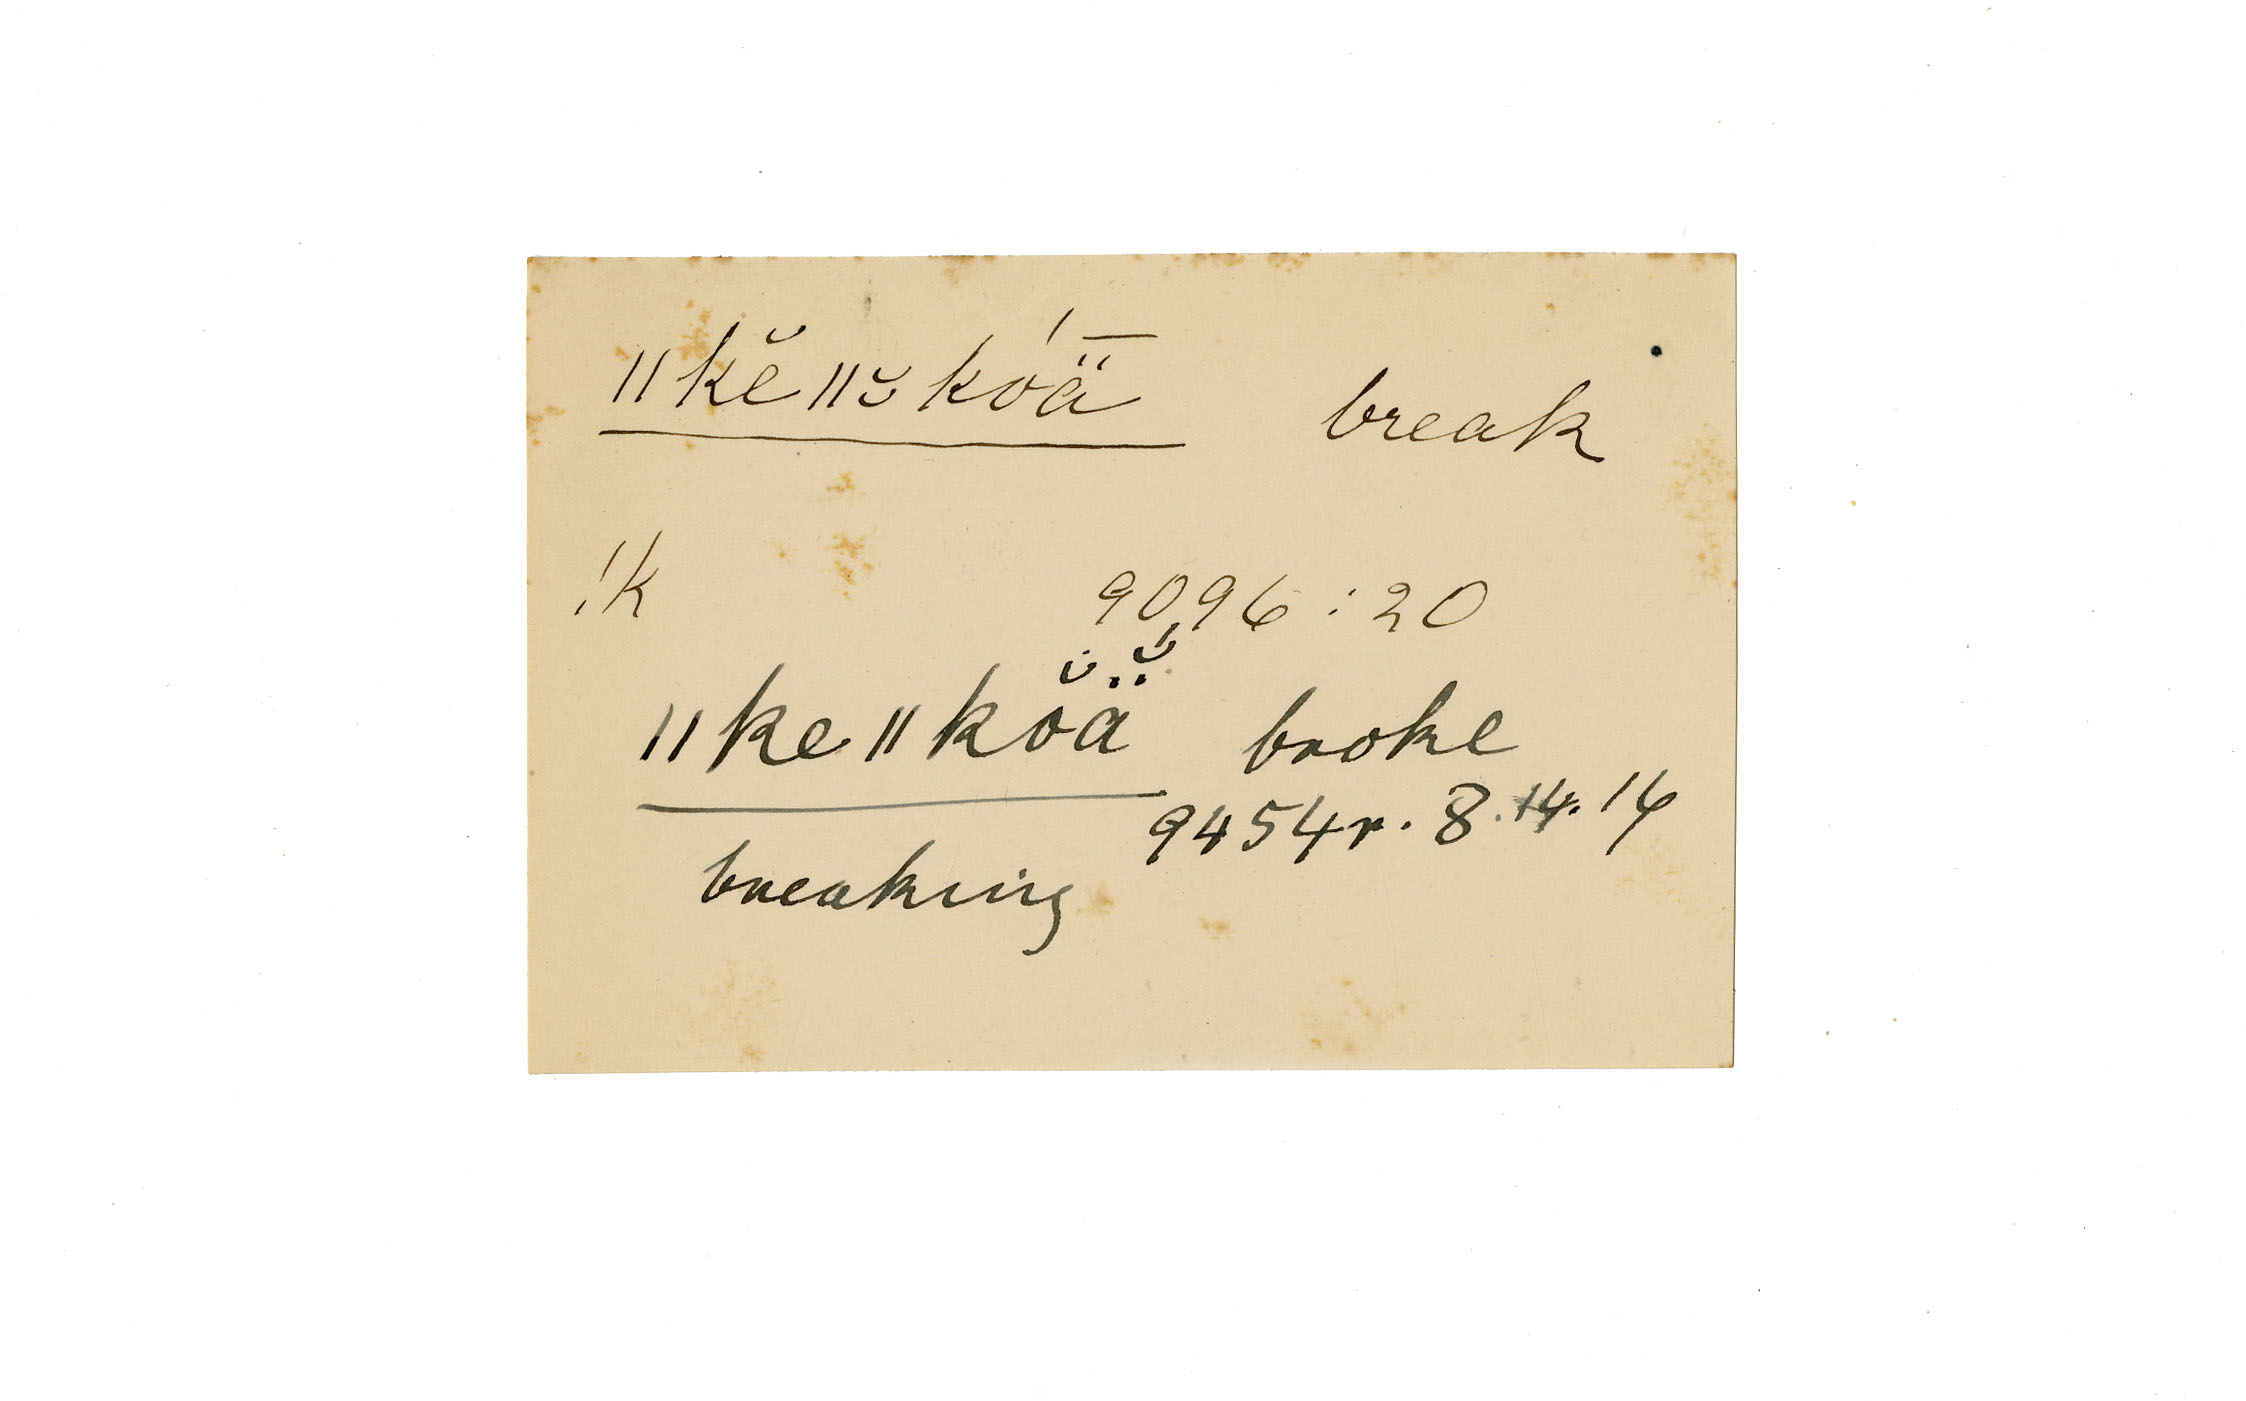 ǁkĕǁ˘kóǟ break
!k 9096:20
ǁkeǁkŏä̆́ broke
9454r. 8. 14. 16
breaking